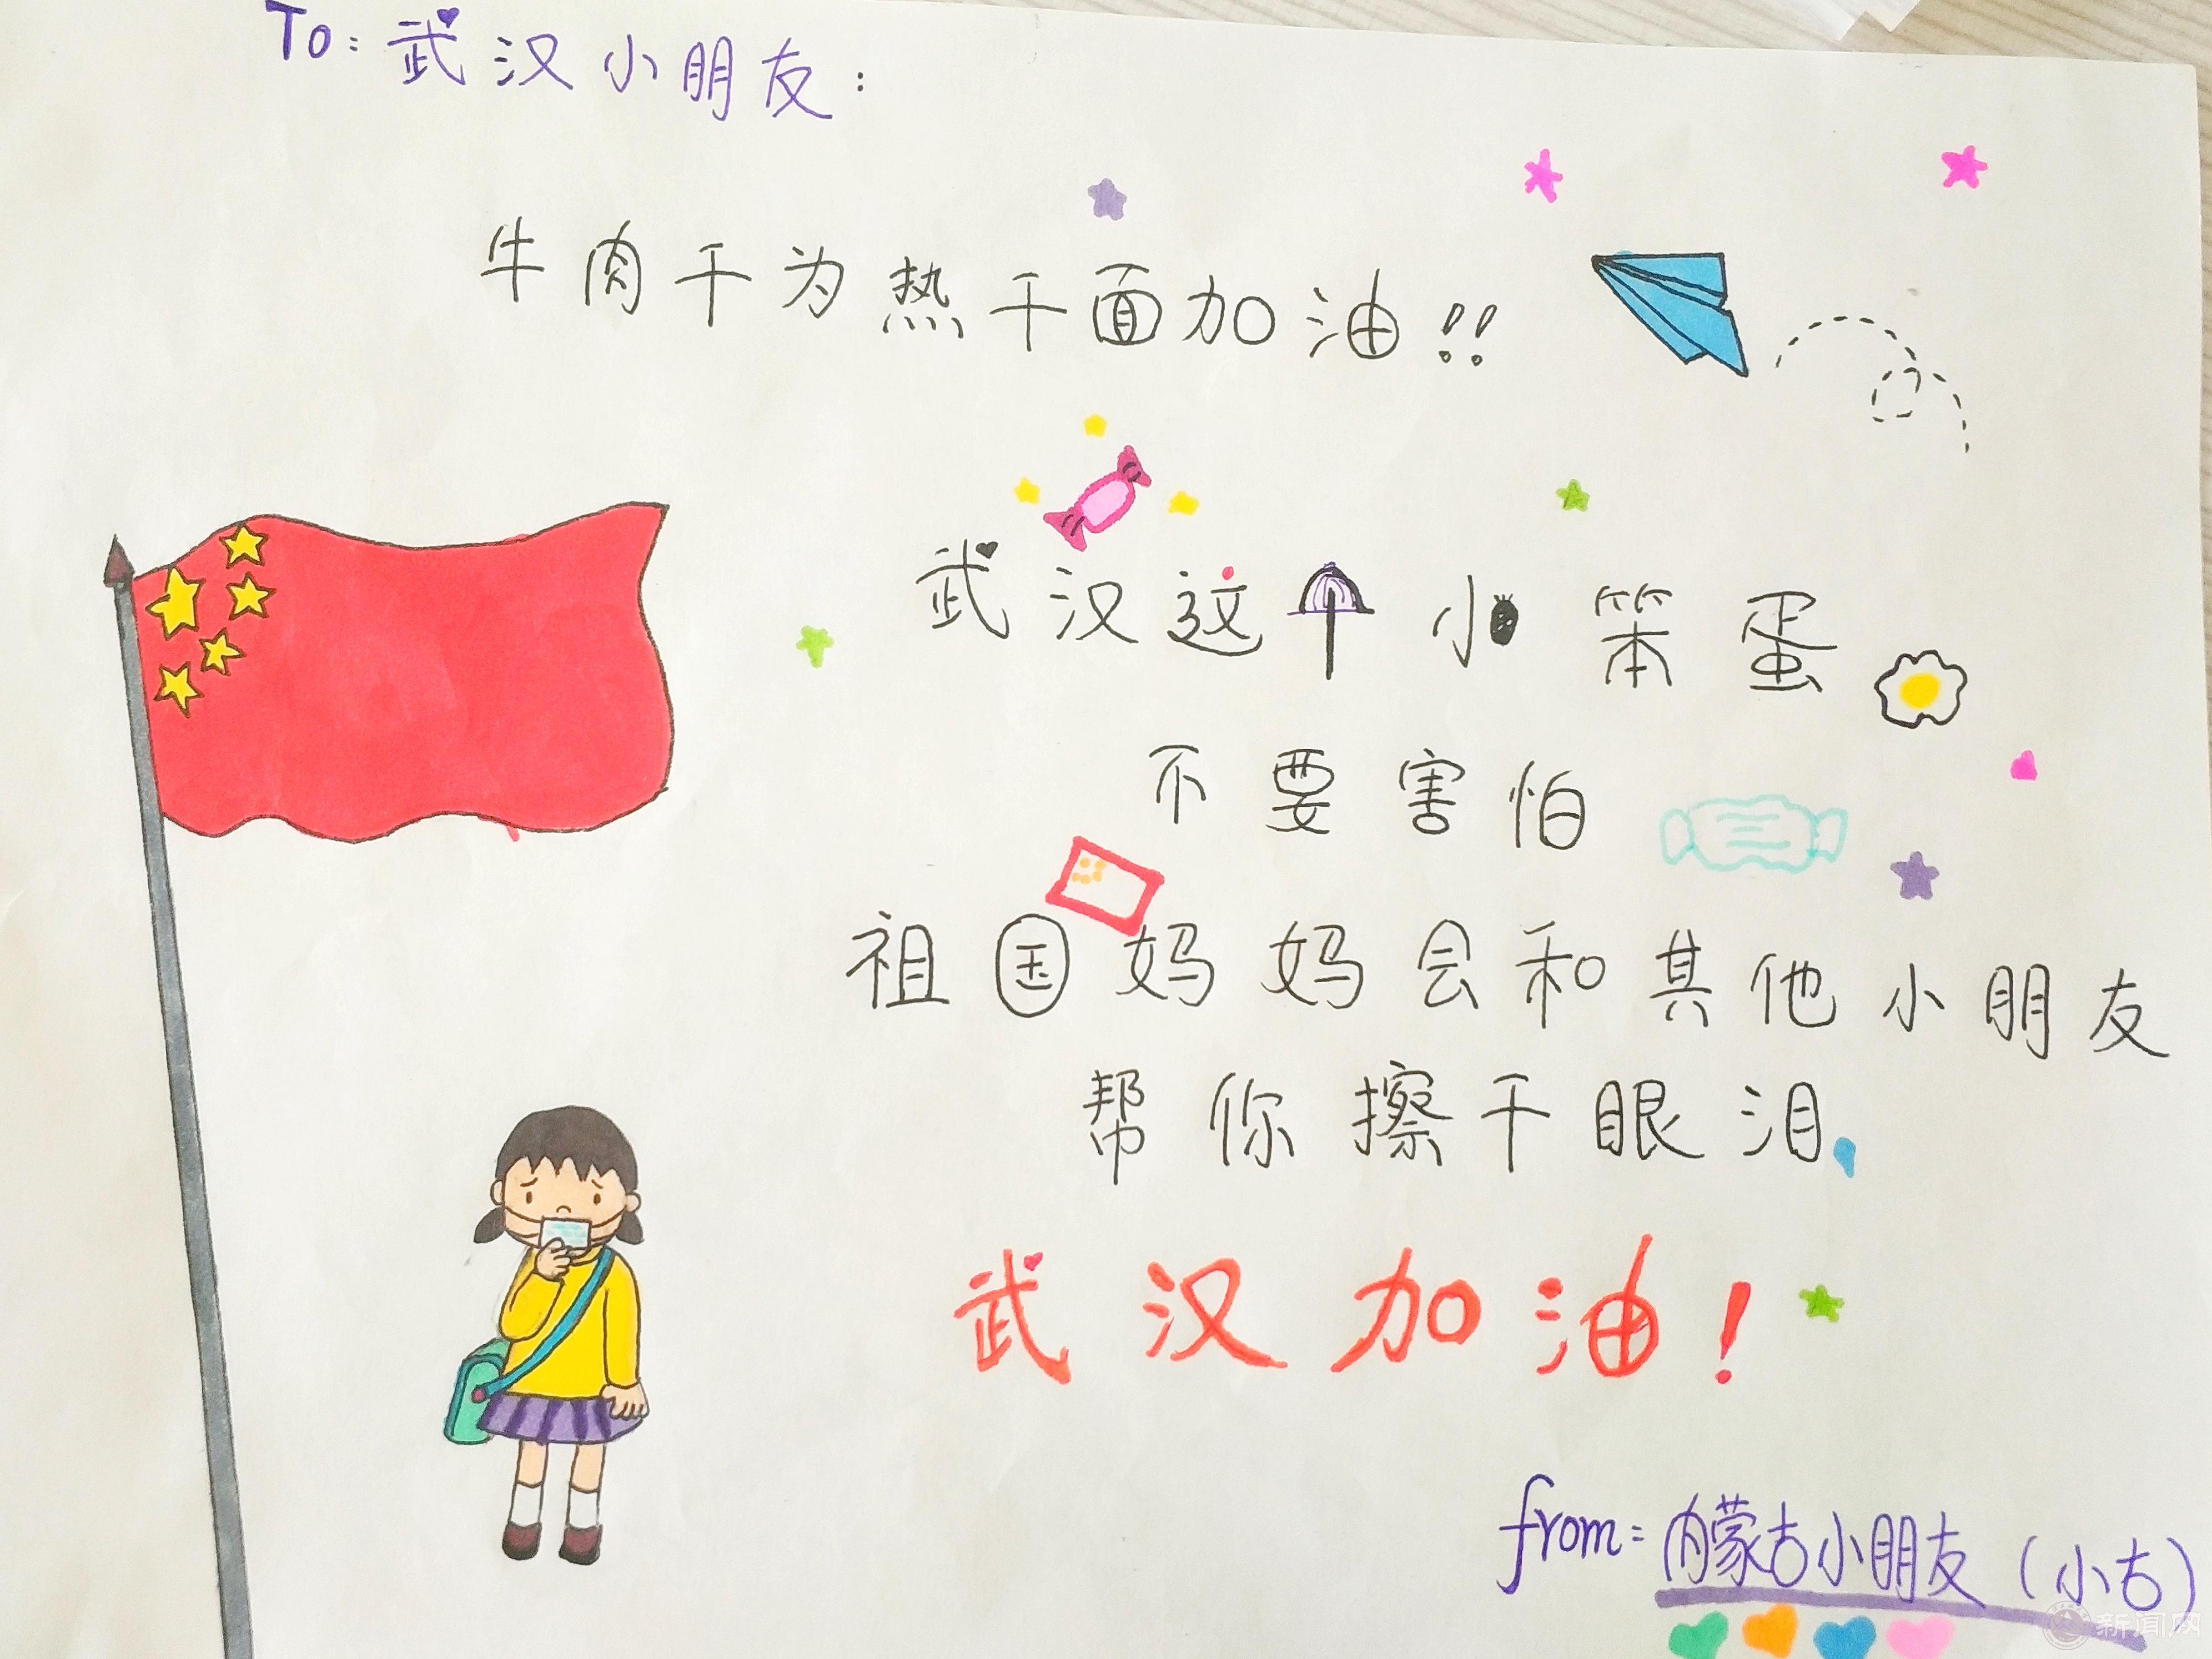 To：武汉小朋友：
牛肉干为热干面加油！！
武汉这个小笨蛋
不要害怕
祖国妈妈会和其他小朋友
帮你擦干眼泪
武汉加油！
from：内蒙古小朋友（小古）
新闻网